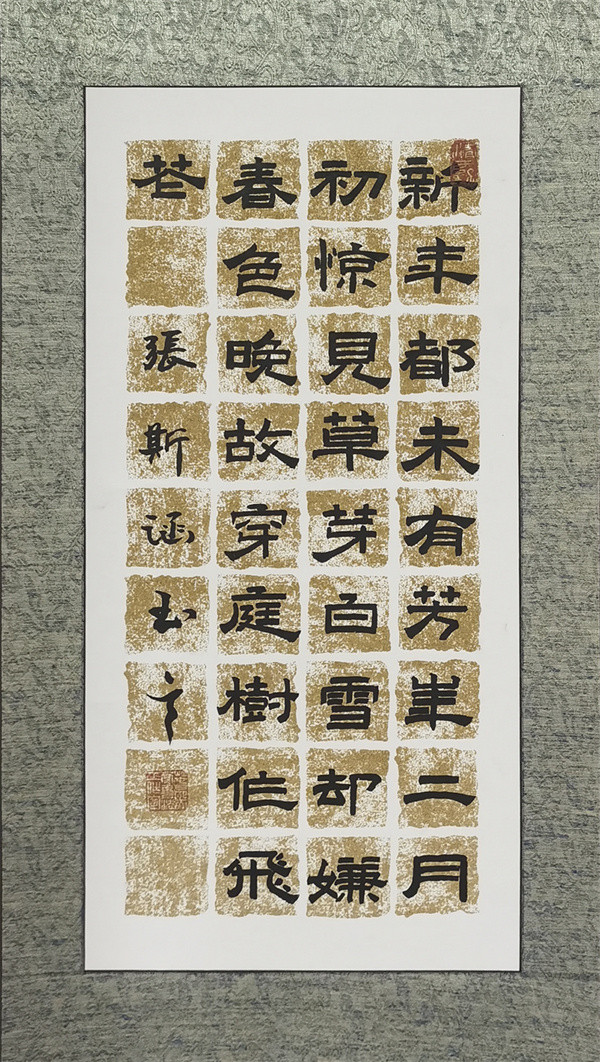 新年都未有芳華二月
初惊見草芽白雪却嫌
春色晚故穿庭樹作飛
花 張斯涵书